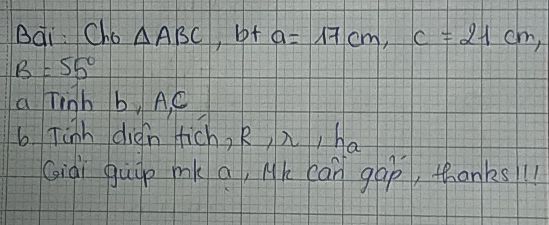 Bài: Cho ΔABC, b+ a= 17 cm, c = 21 cm,
B = 55°
a Tính b, A,C
b. Tính diện tích, R, r, ha
Giải giúp mk a, Mk cần gấp, thanks!!!